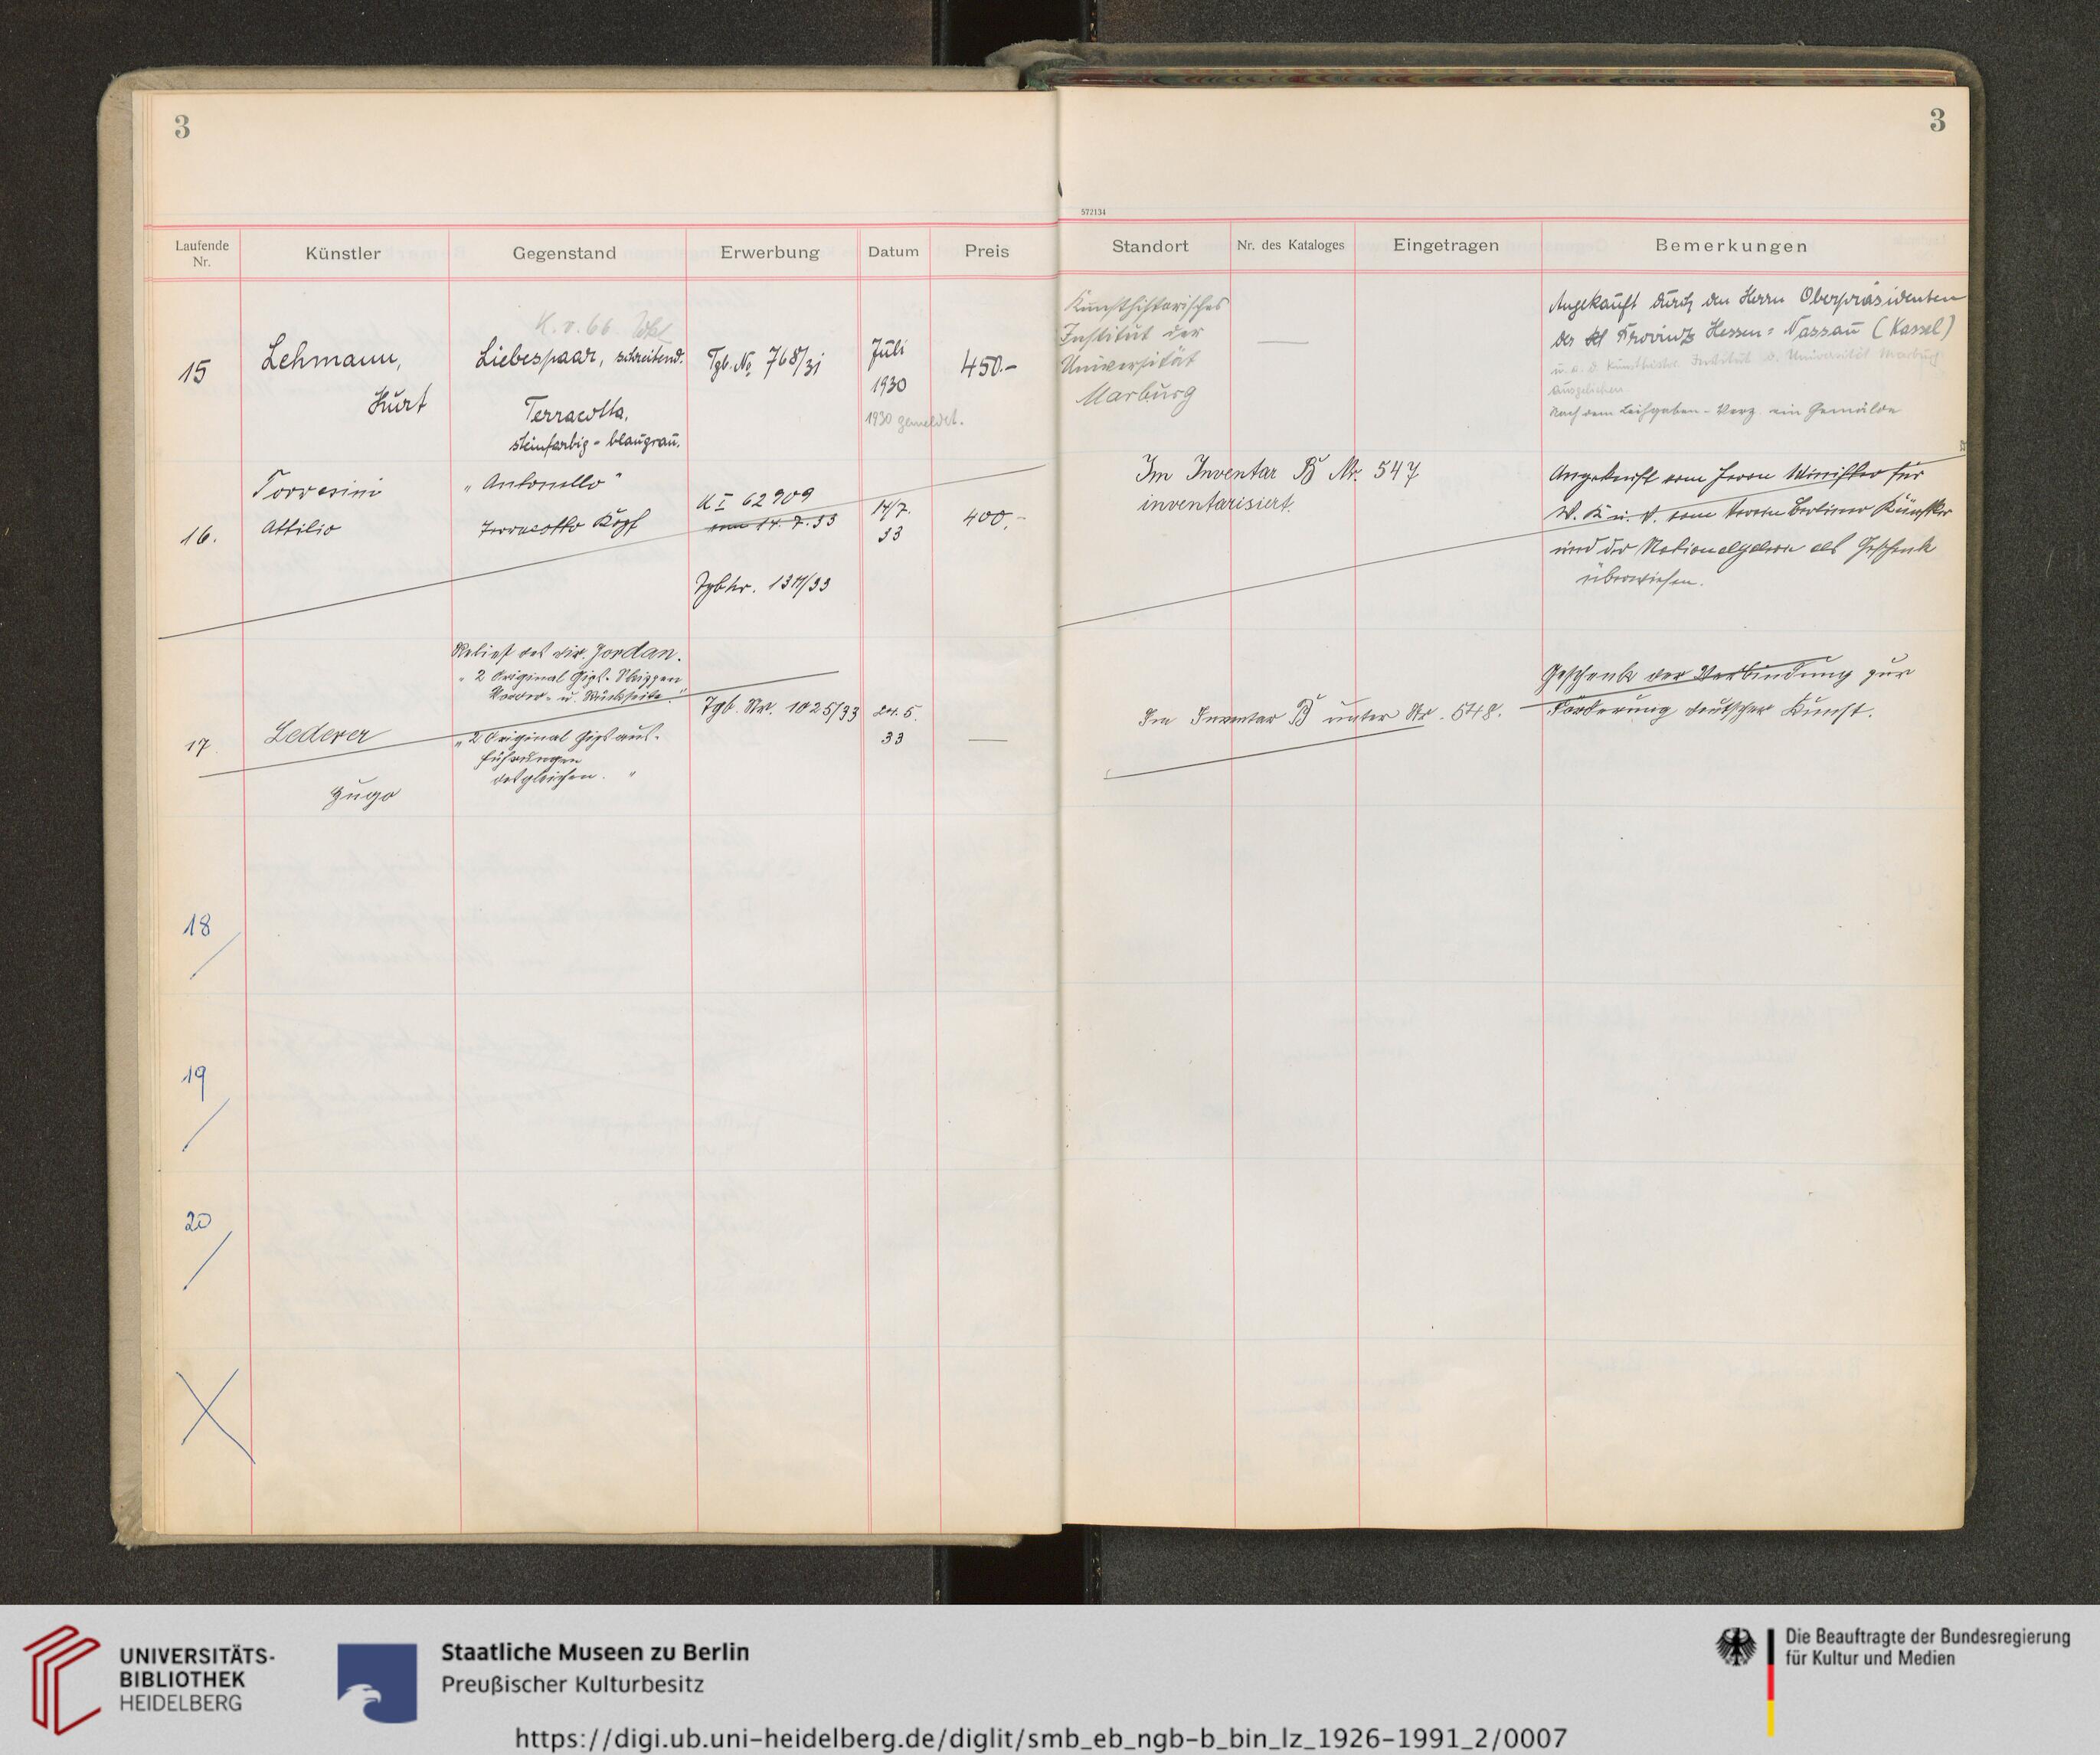 3
3
572134
Laufende Nr.
Künstler
Gegenstand
Erwerbung
Datum
Preis
Standort
Nr. des Kataloges
Eingetragen
Bemerkungen
15
Lehmann,
Kurt
K. v. 66.
Liebespaar, schreitend.
Terracotta,
steinfarbig - blaugrau.
Tgb. No 768/31
Juli
1930
1930 gemeldet.
450.-
Kunsthistorisches
Institut der
Universität
Marburg
—
Angekauft durch den Herrn Oberpräsidenten
der Provinz Hessen = Nassau (Kassel)
u. a. d. Kunsthistor. Institut d. Universität Marburg
ausgeliehen
Nach dem Leihgaben - Verz. ein Gemälde
16.
Torresini
Attilio
"Antonello"
Terracotta Kopf
U I 62909
vom 14. 7. 33
Tgb Nr. 1311/33
14/7.
33
400,-
Im Inventar B Nr. 547
inventarisiert.
Angekauft vom Herrn Minister für
W. K. u. V. vom Verein Berliner Künstler
und der Nationalgalerie als Geschenk
überwiesen.
17
Lederer
Hugo
Relief des Dir. Jordan.
"2 Original Gips-Skizzen
Vorder- u. Rückseite."
"2 Original Gipsaus-
führungen
desgleichen."
Tgb. Nr. 1025/33
24. 5.
33
—
Im Inventar B unter Nr. 548.
Geschenk der Verbindung zur
Förderung deutscher Kunst.
18
19
20
UNIVERSITÄTS-
BIBLIOTHEK
HEIDELBERG
Staatliche Museen zu Berlin
Preußischer Kulturbesitz
Die Beauftragte der Bundesregierung
für Kultur und Medien
https://digi.ub.uni-heidelberg.de/diglit/smb_eb_ngb-b_bin_lz_1926-1991_2/0007